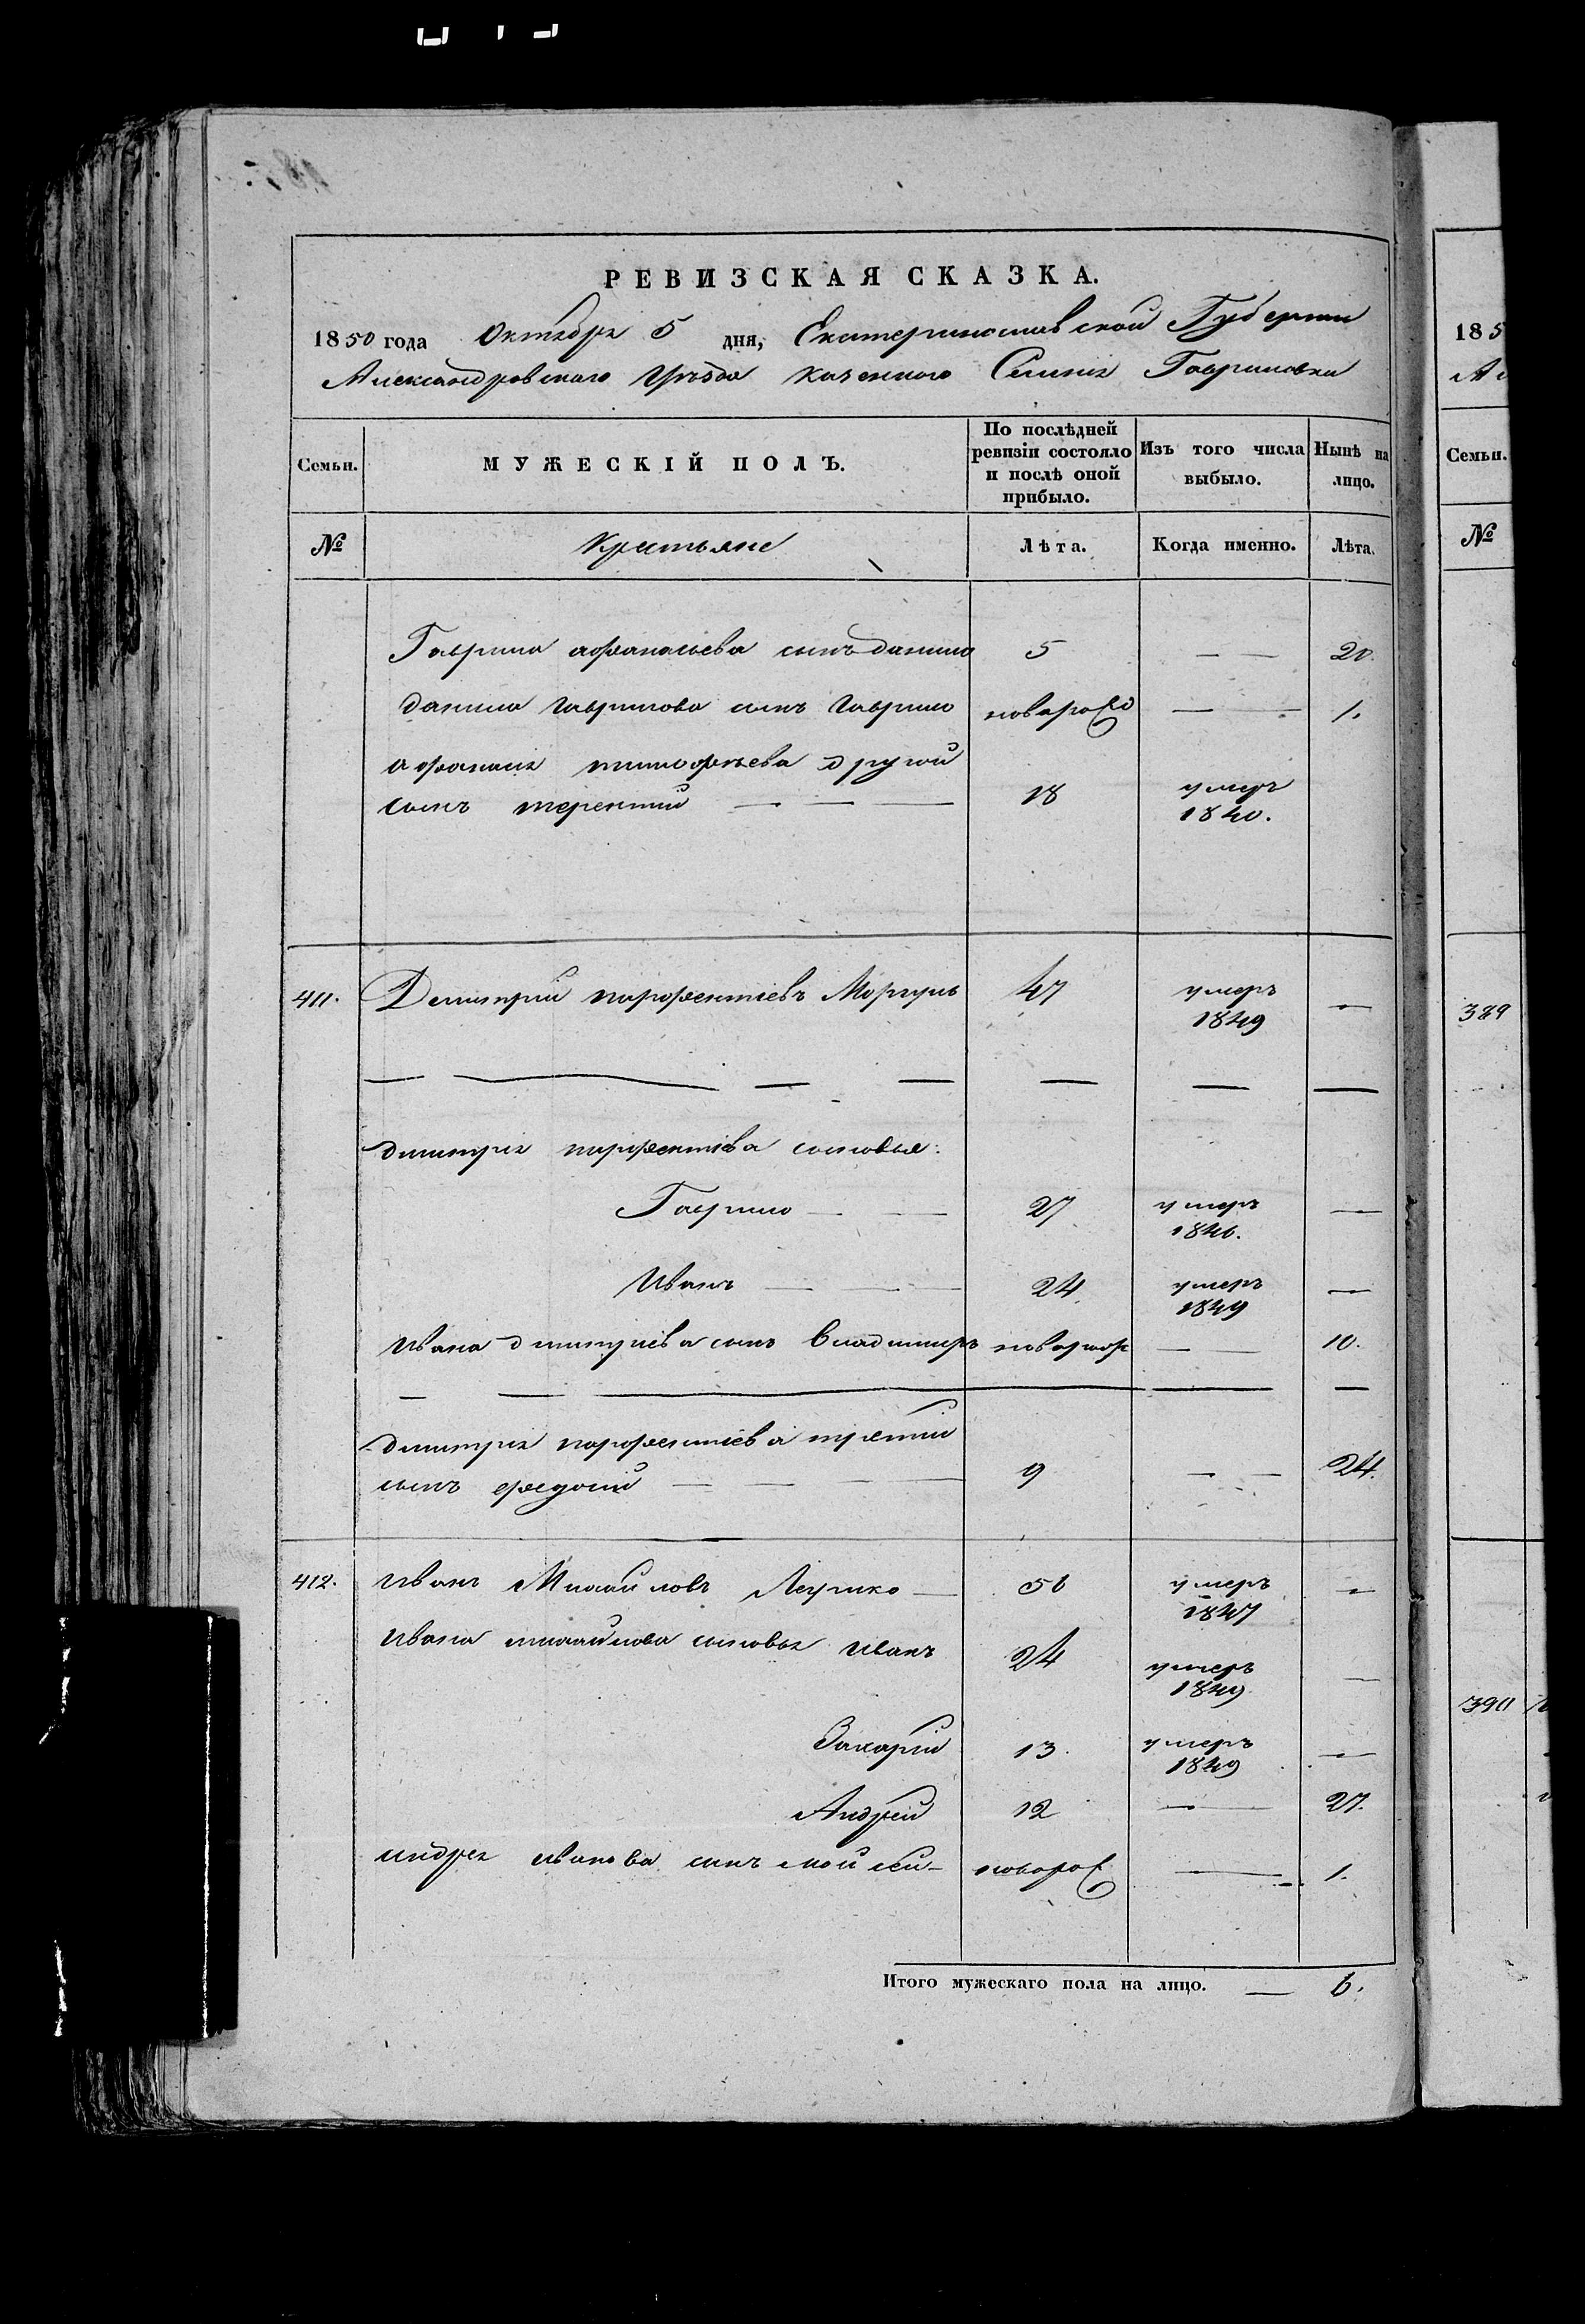 РЕВИЗСКАЯ СКАЗКА.
1850 года Октября 5 дня, Екатеринославской Губернии
Александровского Уѣзда Казенного Селенія Гавриловки
Семьи. МУЖЕСКІЙ ПОЛЪ. По послѣдней ревизіи состояло и послѣ оной прибыло. Изъ того числа выбыло. Нынѣ на лицо.
№ Крестьяне Лѣта. Когда именно. Лѣта.
Гаврила афанасьева сынъ данило 5 — — 20.
данила гаврилова сынъ гаврило новорож — — 1.
афанасія тимофѣева другой
сынъ терентий — — — 18 умеръ 1840.
411. Димитрий парфентіевъ Моргунъ 47 умеръ 1849 —
димитрія парфентіева сыновья:
Гаврило — — 27 умеръ 1846. —
Иванъ — — — 24. умеръ 1849 —
Ивана димитріева сынъ владимиръ — — 10.
димитрія парфентіева третий
сынъ федосий — — — 9 — — 24.
412. Иванъ Михайловъ — 56 умеръ 1847 —
Ивана михайлова сыновья иванъ 24 умеръ 1849 —
Захарій 13. умеръ 1849 —
Андрей 12 — 27.
андрея иванова сынъ моисей — новорож — 1.
Итого мужескаго пола на лицо. — 6.
185
Семьи.
№
389
390